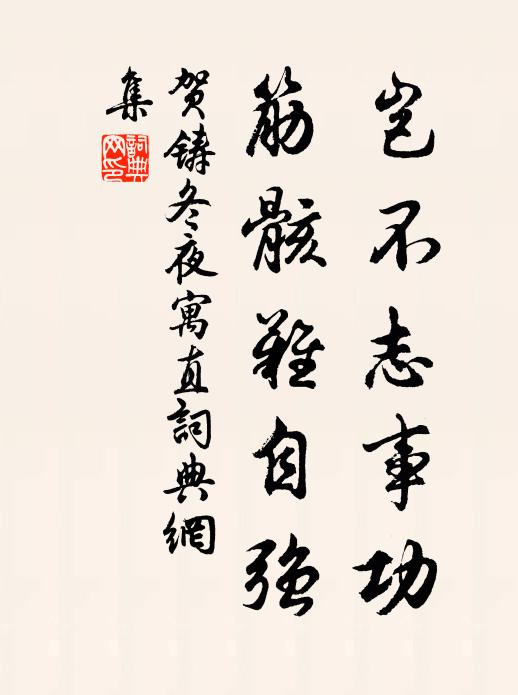 岂不志事功
筋骸难自强
贺铸冬夜寓直詞典網
集
詞典
网印